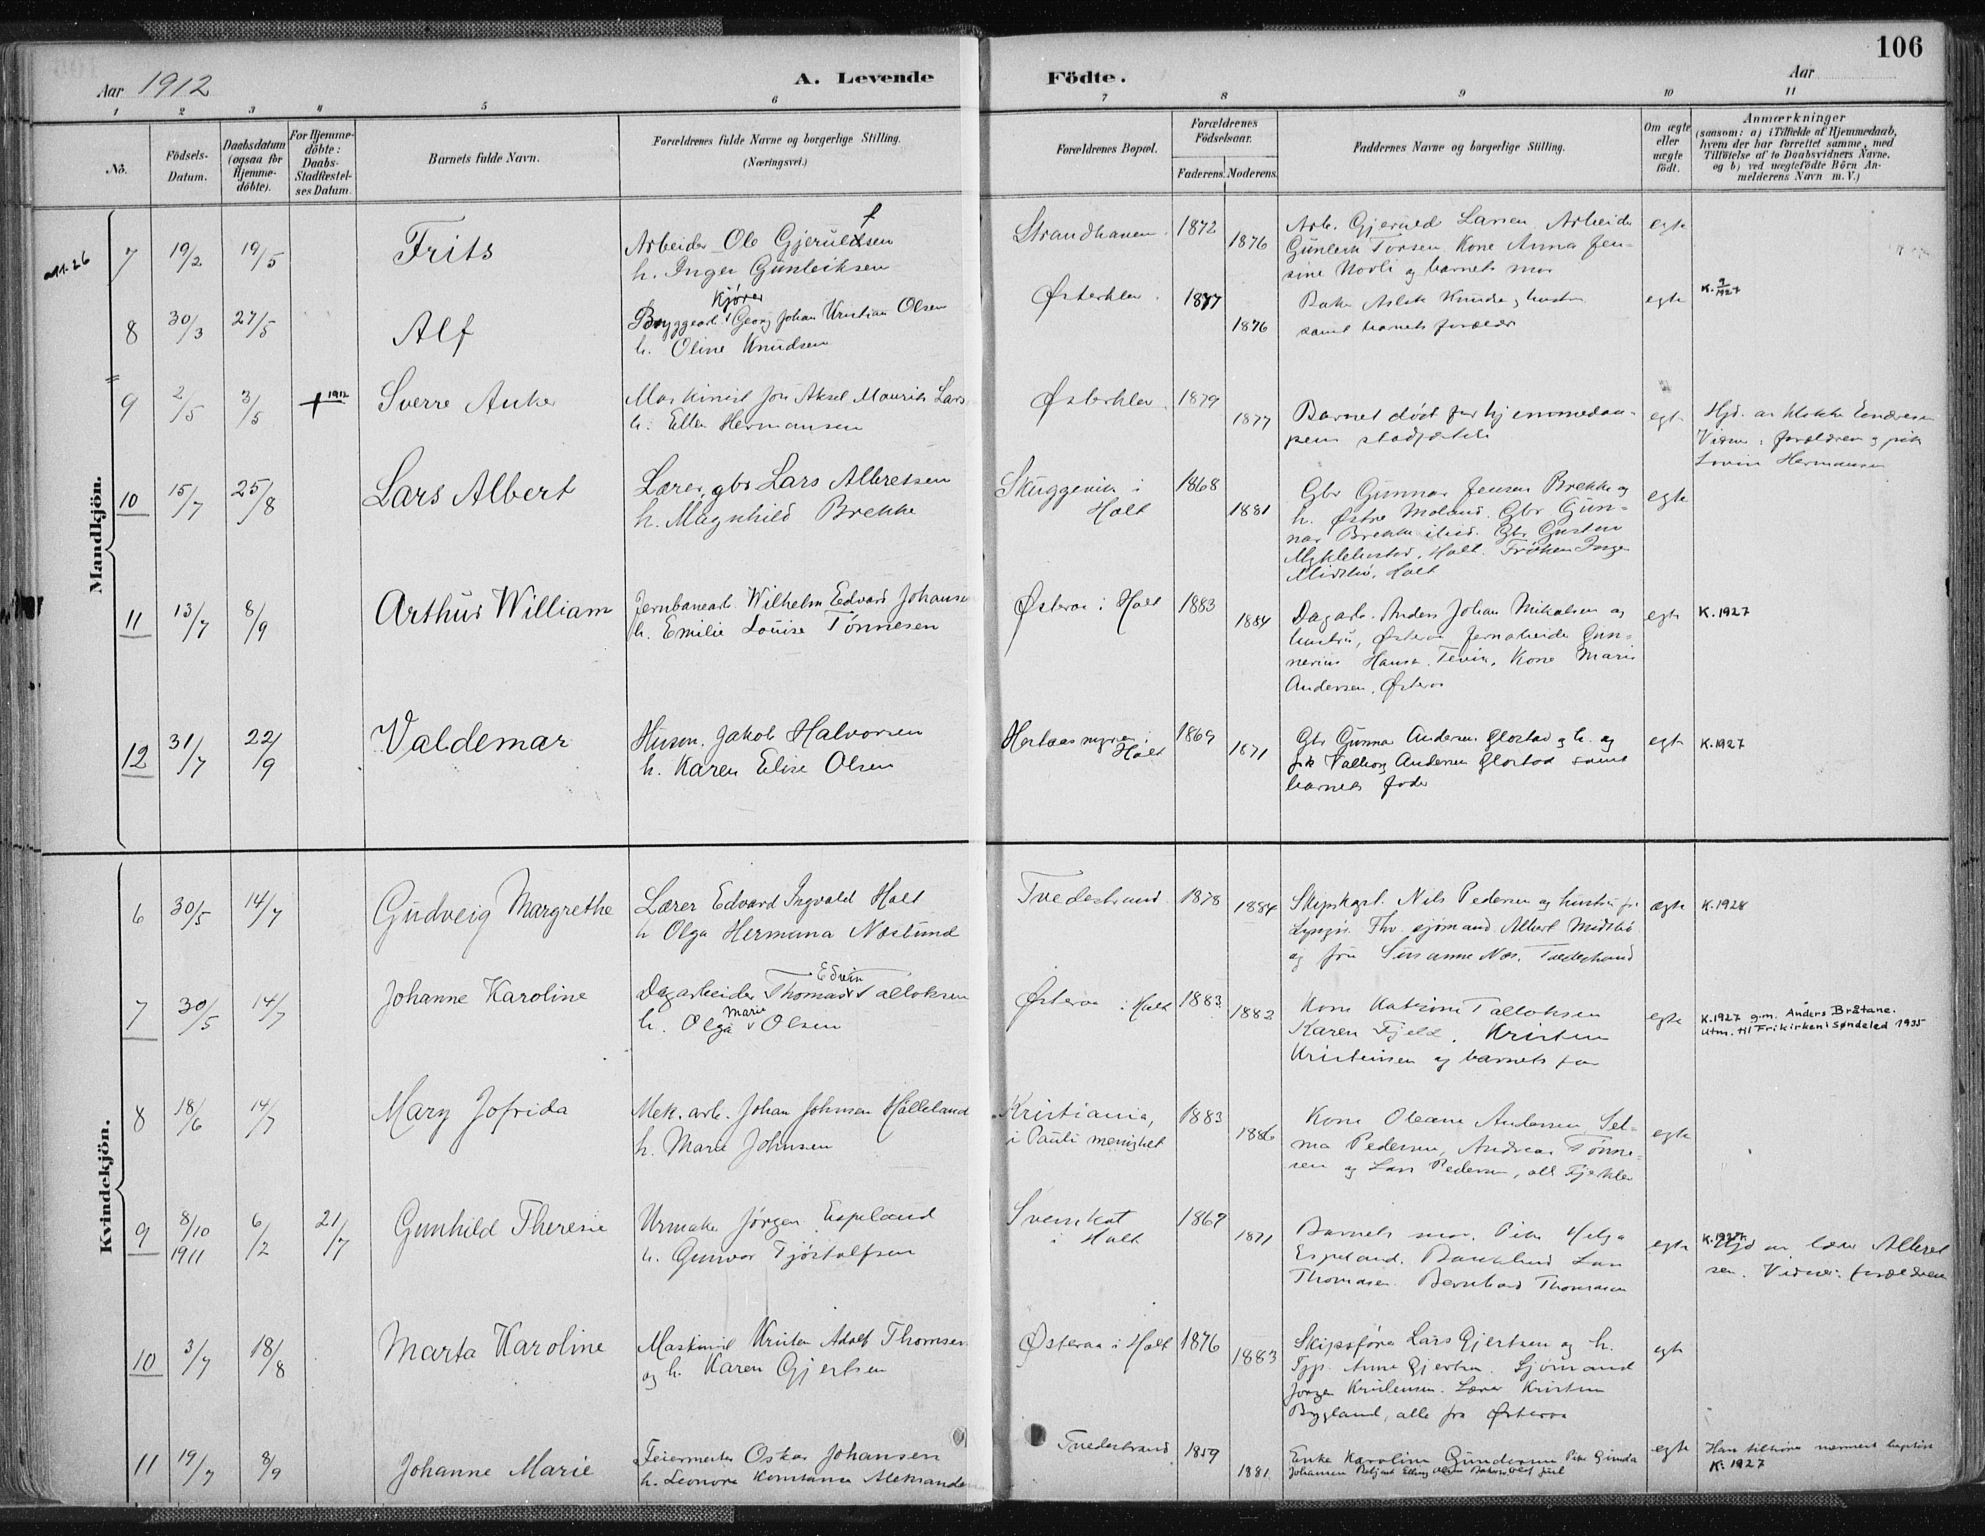 106
Aar 1912
A. Levende
Födte.
Aar
1 2 3 4 5 6 7 8 9 10 11
No.
Födsels-
Datum.
Daabsdatum
(ogsaa for
Hjemme-
döbte).
For Hjemme-
döbte:
Daabs-
Stadfæstel-
ses Datum.
Barnets fulde Navn.
Forældrenes fulde Navne og borgerlige Stilling.
(Næringsvei.)
Forældrenes Bopæl.
Forældrenes
Födselsaar.
Faderens. Moderens.
Faddernes Navne og borgerlige Stilling.
Om ægte
eller
uægte
födt.
Anmærkninger
(saasom: a) i Tilfælde af Hjemmedaab,
hvem der har forrettet samme, med
Tilföielse af to Daabsvidners Navne,
og b) ved uægtefödte Börn An-
melderens Navn m. V.)
Mandkjön.
7 19/2 19/5 Frits
Arbeider Ole Gjerulfsen
h. Inger Gunleiksen
1872
1876
Arb. Gjeruld Larsen Arbeider
Gunleik Torsen. Kone Anna Jen-
sine Movli og barnets mor
egte
8 30/3 27/5 Alf
kjører
Bryggearb. Georg Johan Kristian Olsen
h. Oline Knudsen
Østerklev
1877
1876
samt barnets forældre
egte
K. 1927
9 2/5 3/5 + 1912 Sverre Anker
Maskinist Jon Aksel Maurits Lars
h. Ellen Hermansen
Østerklev
1879
1877
Barnet døst før hjemmedaa-
pens stadfæstelse
egte
Vidner: forældrene og pike
Lovise Hermansen
10 15/7 25/8 Lars Albert
Lærer, gbr Lars Albretsen
h. Magnhild Brekke
Skuggevik i
Holt
1868
1881
Gbr Gunnar Jensen Brekke og
h. Østre Moland. Gbr Gun-
nar Brekke ibid. Gbr Gusten
Myklebostad, Holt. Frøken Inga
Midtbø, Holt
egte
11 13/7 8/9 Arthur William
Jernbanearb. Wilhelm Edvard Johanse
h. Emilie Louise Tønnesen
Østeraa i Holt
1883
1884
Dagarb. Anders Johan Mikalsen og
hustru, Østeraa Jernarbeider Gun-
nerius Hansen. Tevik, Kone Marie
Andersen, Østeraa
egte
K. 1927
12 31/7 22/9 Valdemar
Husm. Jakob Halvorsen
h. Karen Elise Olsen
Hestaasmyren i
Holt
1869
1871
Gbr Gunnar Andersen Glostad og h. og
pik Valborg Andersen Glostad samt
barnets fader
egte
K. 1927
Kvindekjön.
6 30/5 14/7 Gudveig Margrethe
Lærer Edvard Ingvald Holt
h Olga Hermana Næslund
Tvedestrand
1878
1884
Skipskapt. Nils Pedersen og hustru fr
Lyngør. Fhv. sjømand Albert Midtbø
og fru Susanne Næs, Tvedestrand
ægte
K. 1928
7 30/5 14/7 Johanne Karoline
Edvin
Dagarbeider Thomas Talloksen
Marie
h. Olga Olsen
Østeraa i Holt
1883
1882
Kone Katrine Talloksen
Karen Fjeld, Kristen
Kristensen og barnets far
egte
K. 1927 g.m. Anders Bråtane.
Utm. til Frikirken i Søndeled 1935
8 18/6 14/7 Mary Jofrida
Mek. arb. Johan Johnsen Hølleland
h. Marie Johnsen
Kristiania,
i Pauli menighet
1883
1886
Kone Oleane Andersen, Sel-
ma Pedersen, Andreas Tønne-
sen og Lars Pedersen, alle Fjeklev
egte
9 8/10 1911 6/2 21/7 Gunhild Theresie
Urmaker Jørgen Espeland
h. Gunvor Tjøstolfsen
i Holt
1869
1871
Barnets mor. Pike Helga
Espeland. Lars
Thomasen. Bernhard Thomasen
egte
Hjd av lærer Albret
sen. Vidner: forældrene
10 3/7 18/8 Marta Karoline
Maskinist Kristen Adolf Thomsen
og h. Karen Gjertsen
Østeraa i Holt
1876
1883
Skipsfører Lars Gjertsen og h.
Anne Gjertsen Sjømand
Jørgen Kristensen. Lærer Kristen
Bygland, alle fra Østeraa
egte
11 19/7 8/9 Johanne Marie
Feiermester Oskar Johansen
h. Leonora Konstance Aleksander
Tvedestrand
1859
1881
Enke Karoline Gundersen Pike Gunda
Johansen
egte
K. 1927